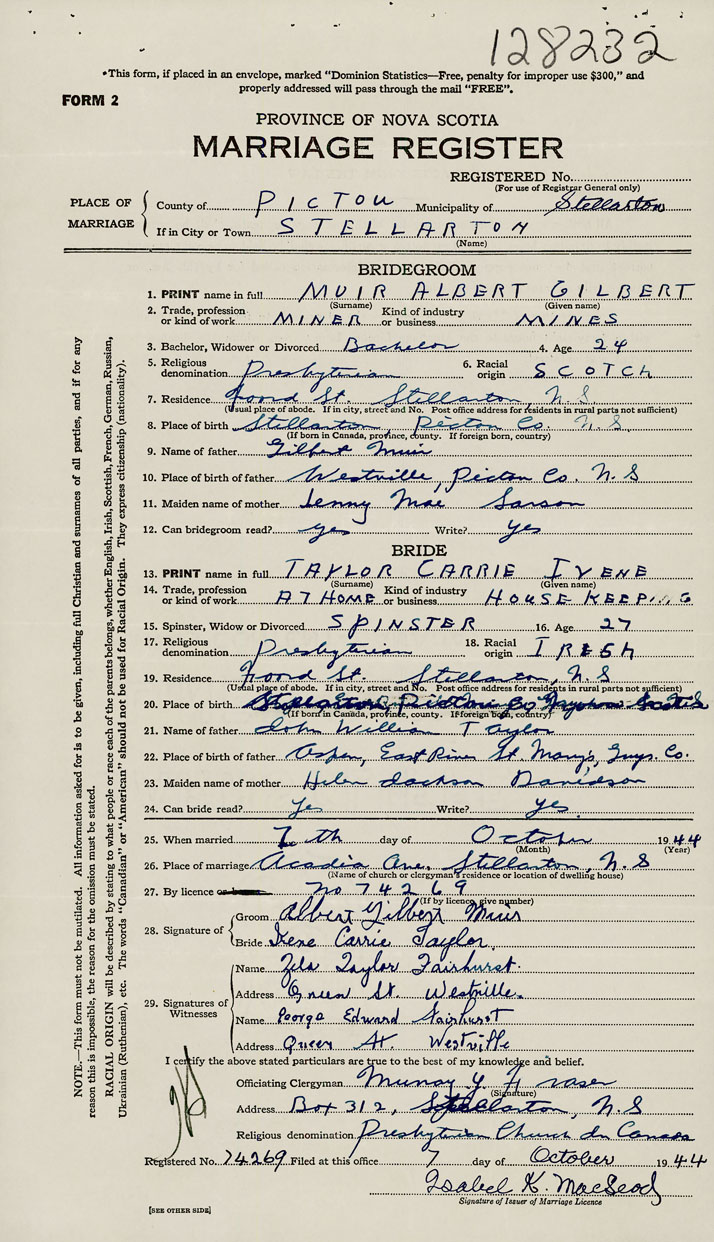 128232
•This form, if placed in an envelope, marked "Dominion Statistics—Free, penalty for improper use $300," and
properly addressed will pass through the mail "FREE".
FORM 2
PROVINCE OF NOVA SCOTIA
MARRIAGE REGISTER
REGISTERED No.
(For use of Registrar General only)
PLACE OF MARRIAGE
County of PICTOU Municipality of Stellarton
If in City or Town STELLARTON
(Name)
BRIDEGROOM
1. PRINT name in full MUIR ALBERT GILBERT
(Surname) (Given name)
2. Trade, profession or kind of work MINER Kind of industry or business MINES
3. Bachelor, Widower or Divorced Bachelor 4. Age 24
5. Religious denomination Presbyterian 6. Racial origin SCOTCH
7. Residence Foord St. Stellarton, N.S
(Usual place of abode. If in city, street and No. Post office address for residents in rural parts not sufficient)
8. Place of birth Stellarton, Pictou Co. N.S.
(If born in Canada, province, county. If foreign born, country)
9. Name of father Gilbert Muir
10. Place of birth of father Westville, Pictou Co. N.S
11. Maiden name of mother Jenny Mae
12. Can bridegroom read? yes Write? yes
BRIDE
13. PRINT name in full TAYLOR CARRIE IRENE
(Surname) (Given name)
14. Trade, profession or kind of work AT HOME Kind of industry or business HOUSE KEEPING
15. Spinster, Widow or Divorced SPINSTER 16. Age 27
17. Religious denomination Presbyterian 18. Racial origin IRESH
19. Residence Foord St. Stellarton, N.S
(Usual place of abode. If in city, street and No. Post office address for residents in rural parts not sufficient)
20. Place of birth
(If born in Canada, province, county. If foreign born, country)
21. Name of father John William Taylor
22. Place of birth of father Aspen, East River St. Mary's, Guys. Co.
23. Maiden name of mother Helen Jackson Davidson
24. Can bride read? Yes Write? yes
25. When married 7th day of October 1944
(Month) (Year)
26. Place of marriage Acadia Ave, Stellarton, N.S
(Name of church or clergyman's residence or location of dwelling house)
27. By licence No 74269
(If by licence, give number)
28. Signature of
Groom Albert Gilbert Muir
Bride Irene Carrie Taylor.
29. Signatures of Witnesses
Name Zela Taylor Fairhurst.
Address Queen St. Westville.
Name George Edward Fairhurst
Address Queen St. Westville
I certify the above stated particulars are true to the best of my knowledge and belief.
Officiating Clergyman Murray Y. Fraser
(Signature)
Address Box 312, Stellarton, N.S
Religious denomination Presbyterian Church in Canada
Registered No. 74269 Filed at this office 7 day of October 1944
Isabel K. MacLeod
Signature of Issuer of Marriage Licence
[SEE OTHER SIDE]
NOTE.—This form must not be mutilated. All information asked for is to be given, including full Christian and surnames of all parties, and if for any
reason this is impossible, the reason for the omission must be stated.
RACIAL ORIGIN will be described by stating to what people or race each of the parents belongs, whether English, Irish, Scottish, French, German, Russian,
Ukrainian (Ruthenian), etc. The words "Canadian" or "American" should not be used for Racial Origin. They express citizenship (nationality).